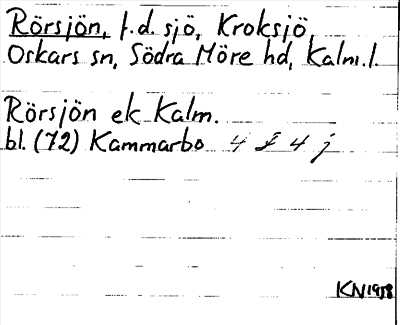 Rörsjön, f.d. sjö, Kroksjö,
Oskars sn, Södra Möre hd, Kalm. l.
Rörsjön ek Kalm.
bl. (72) Kammarbo 4 f 4 j
KN 1958